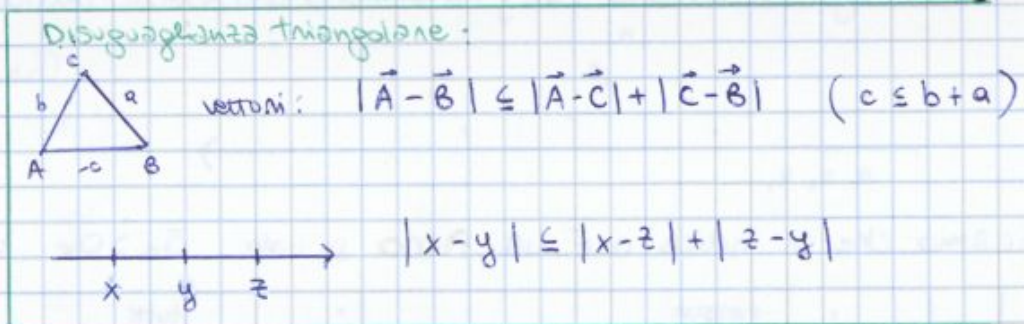 Disuguaglianza triangolare:
C
b a
vettori: |A⃗ - B⃗| ≤ |A⃗ - C⃗| + |C⃗ - B⃗| (c ≤ b + a)
A c B
|x - y| ≤ |x - z| + |z - y|
x y z